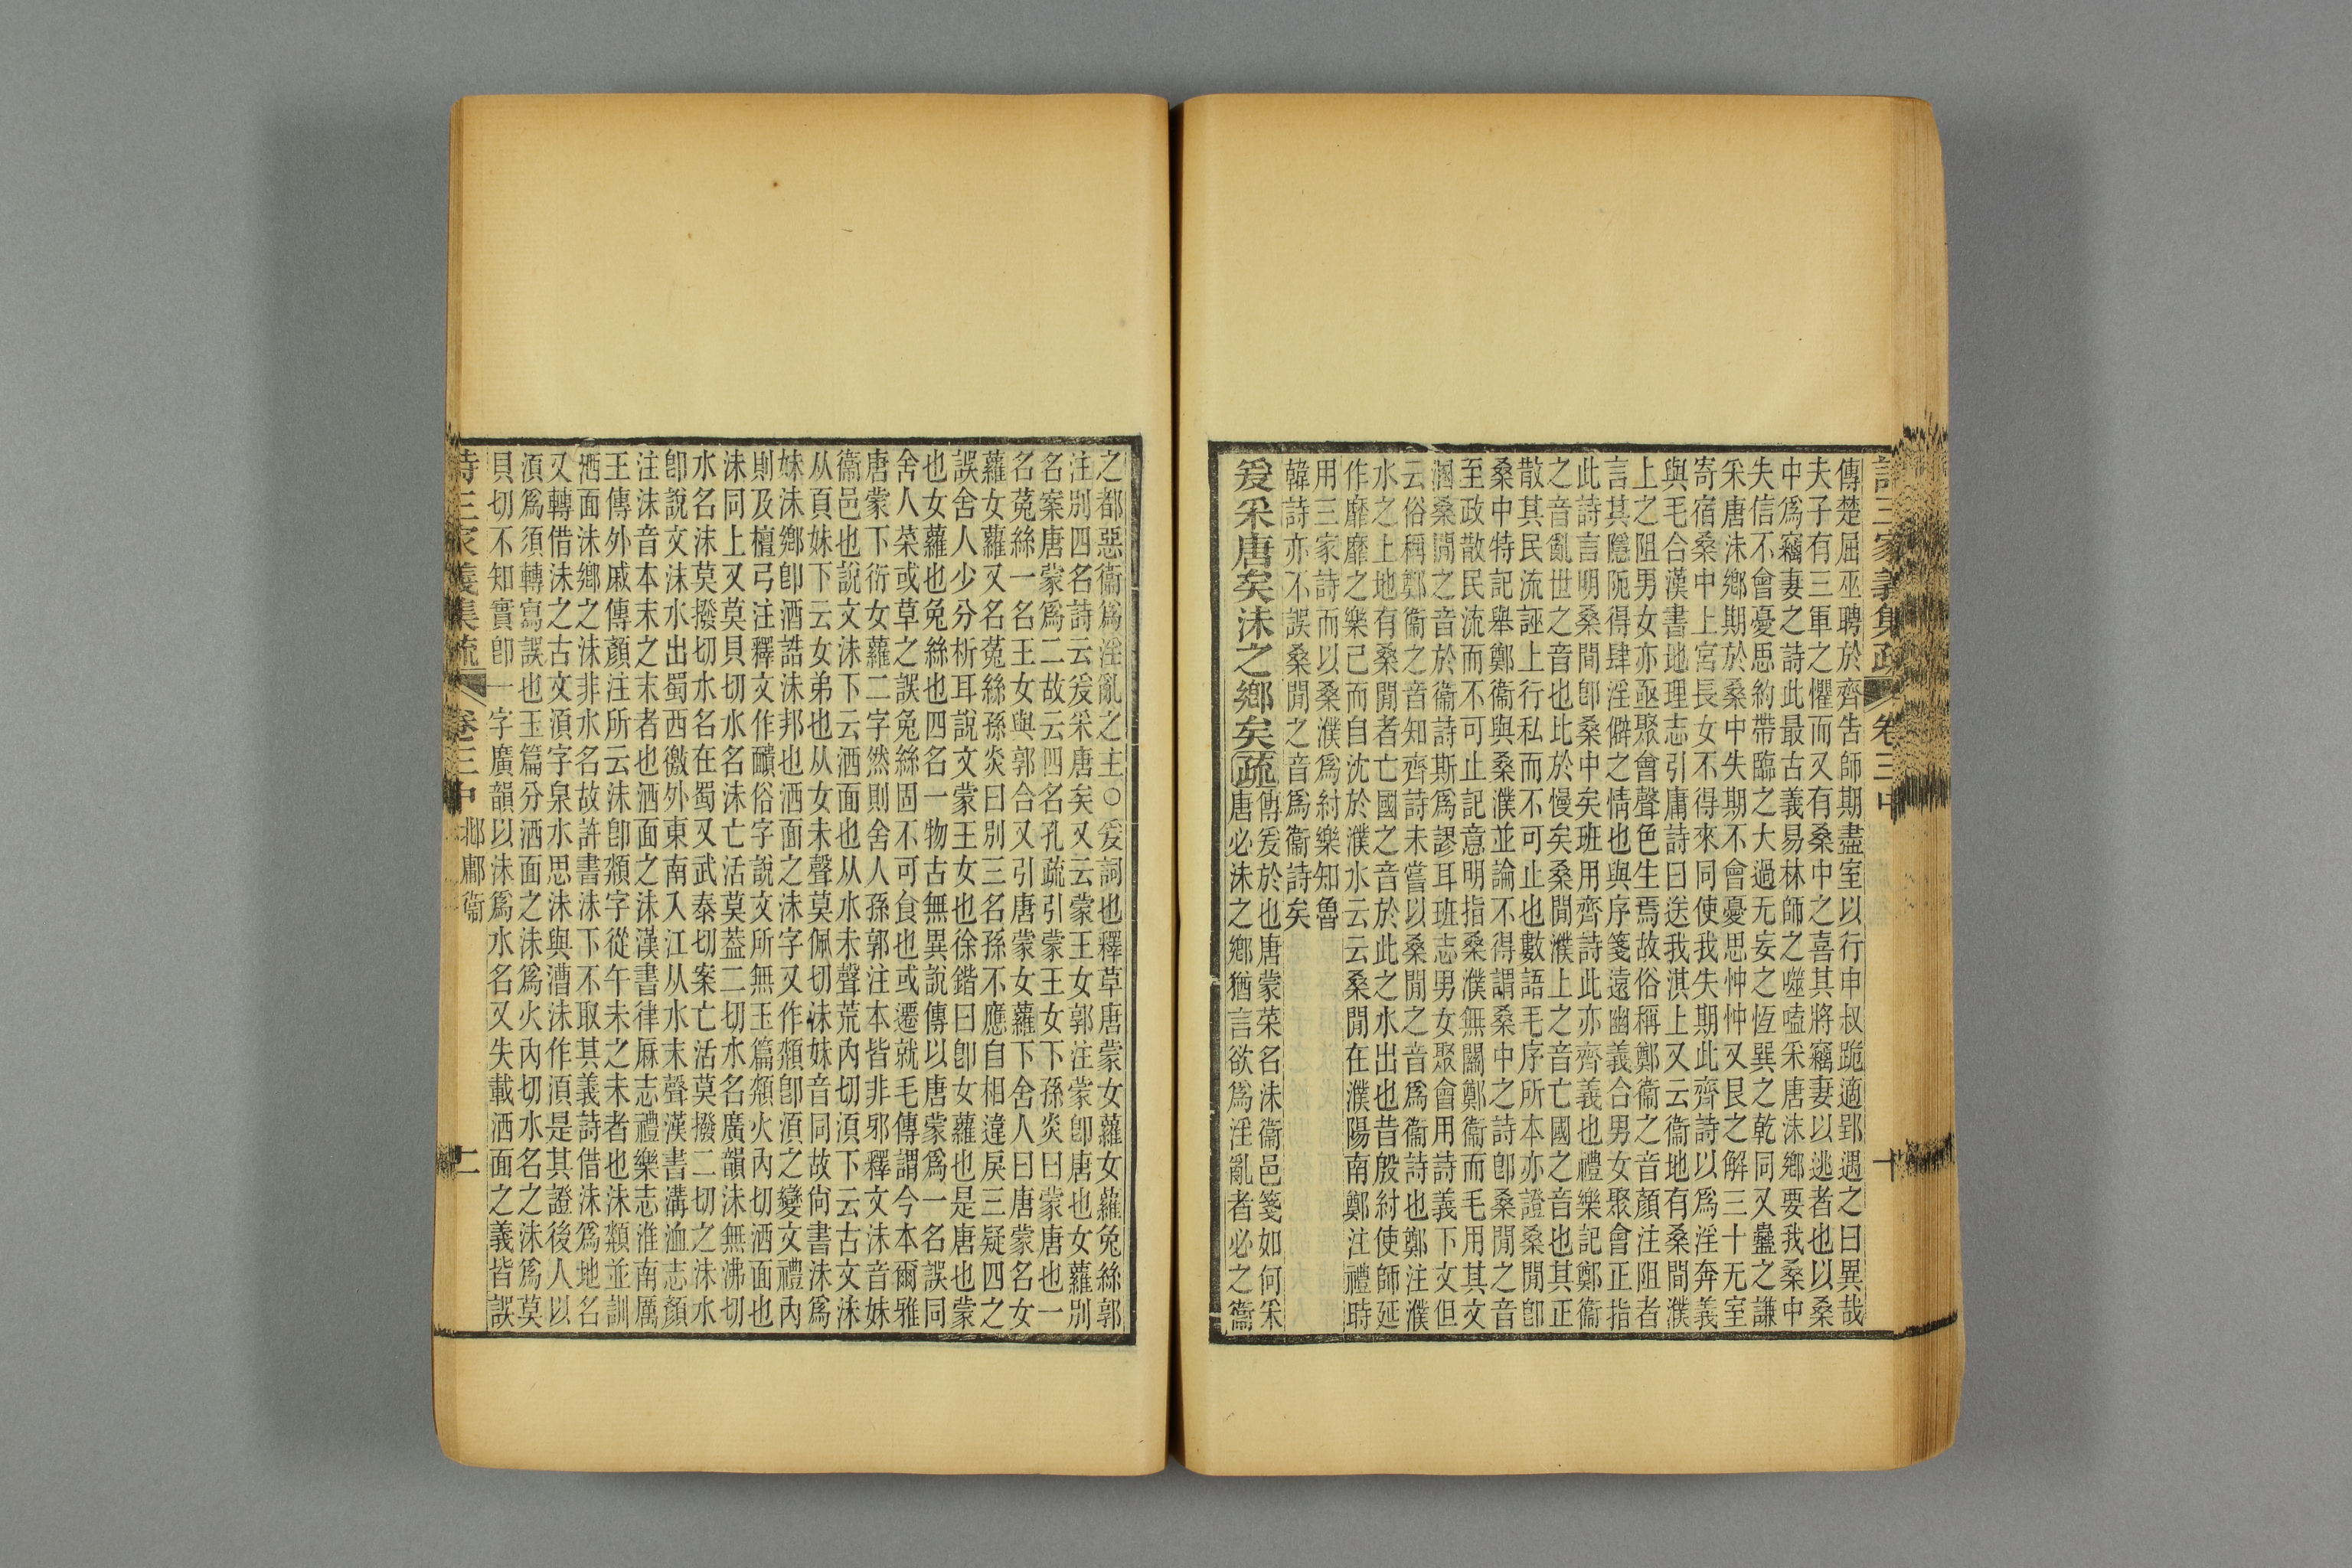 詩三家義集疏 卷三中 十
傳楚屈巫聘於齊告師期盡室以行申叔跪適郢遇之曰異哉
夫子有三軍之懼而又有桑中之喜其將竊妻以逃者也以桑
中爲竊妻之詩此最古義易林師之噬嗑采唐沬鄉要我桑中
失信不會憂思約帶臨之大過无妄之恆巽之乾同又蠱之謙
采唐沬鄉期於桑中失期不會憂思忡忡又艮之解三十无室
寄宿桑中上宮長女不得來同使我失期此齊詩以爲淫奔義
與毛合漢書地理志引庸詩曰送我淇上又云衞地有桑間濮
上之阻男女亦亟聚會聲色生焉故俗稱鄭衞之音顏注阻者
言其隱阨得肆淫僻之情也與序箋遠幽義合男女聚會正指
此詩言明桑間卽桑中矣班用齊詩此亦齊義也禮樂記鄭衞
之音亂世之音也比於慢矣桑閒濮上之音亡國之音也其正
散其民流誣上行私而不可止也數語毛序所本亦證桑閒卽
桑中特記舉鄭衞與桑濮並論不得謂桑中之詩卽桑閒之音
至政散民流而不可止記意明指桑濮無關鄭衞而毛用其文
溷桑閒之音於衞詩斯爲謬耳班志男女聚會用詩義下文但
云俗稱鄭衞之音知齊詩未嘗以桑閒之音爲衞詩也鄭注濮
水之上地有桑閒者亡國之音於此之水出也昔殷紂使師延
作靡靡之樂己而自沈於濮水云云桑閒在濮陽南鄭注禮時
用三家詩而以桑濮爲紂樂知魯
韓詩亦不誤桑閒之音爲衞詩矣
爰采唐矣沬之鄉矣疏傳爰於也唐蒙菜名沬衞邑箋如何采
唐必沬之鄉猶言欲爲淫亂者必之衞
之都惡衞爲淫亂之主○爰詞也釋草唐蒙女蘿女蘿兔絲郭
注別四名詩云爰采唐矣又云蒙王女郭注蒙卽唐也女蘿別
名案唐蒙爲二故云四名孔疏引蒙王女下孫炎曰蒙唐也一
名菟絲一名王女與郭合又引唐蒙女蘿下舍人曰唐蒙名女
蘿女蘿又名菟絲孫炎曰別三名孫不應自相違戾三疑四之
誤舍人少分析耳說文蒙王女也徐鍇曰卽女蘿也是唐也蒙
也女蘿也兔絲也四名一物古無異說傳以唐蒙爲一名誤同
舍人菜或草之誤兔絲固不可食也或遷就毛傳謂今本爾雅
唐蒙下衍女蘿二字然則舍人孫郭注本皆非邪釋文沬音妹
衞邑也說文沬下云洒面也从水未聲荒內切湏下云古文沬
从頁妹下云女弟也从女未聲莫佩切沬妹音同故尙書沬爲
妹沬鄉卽酒誥沬邦也洒面之沬字又作頮卽湏之變文禮內
則及檀弓注釋文作靧俗字說文所無玉篇頮火內切洒面也
沬同上又莫貝切水名沬亡活莫蓋二切水名廣韻沬無沸切
水名沬莫撥切水名在蜀又武泰切案亡活莫撥二切之沬水
卽說文沬水出蜀西徼外東南入江从水末聲漢書溝洫志顏
注沬音本末之末者也洒面之沬漢書律厤志禮樂志淮南厲
王傳外戚傳顏注所云沬卽頮字從午未之未者也沬頮並訓
洒面沬鄉之沬非水名故許書沬下不取其義詩借沬爲地名
又轉借沬之古文湏字泉水思沬與漕沬作湏是其證後人以
湏爲須轉寫誤也玉篇分洒面之沬爲火內切水名之沬爲莫
貝切不知實卽一字廣韻以沬爲水名又失載洒面之義皆誤
詩三家義集疏 卷三中 邶鄘衞 二